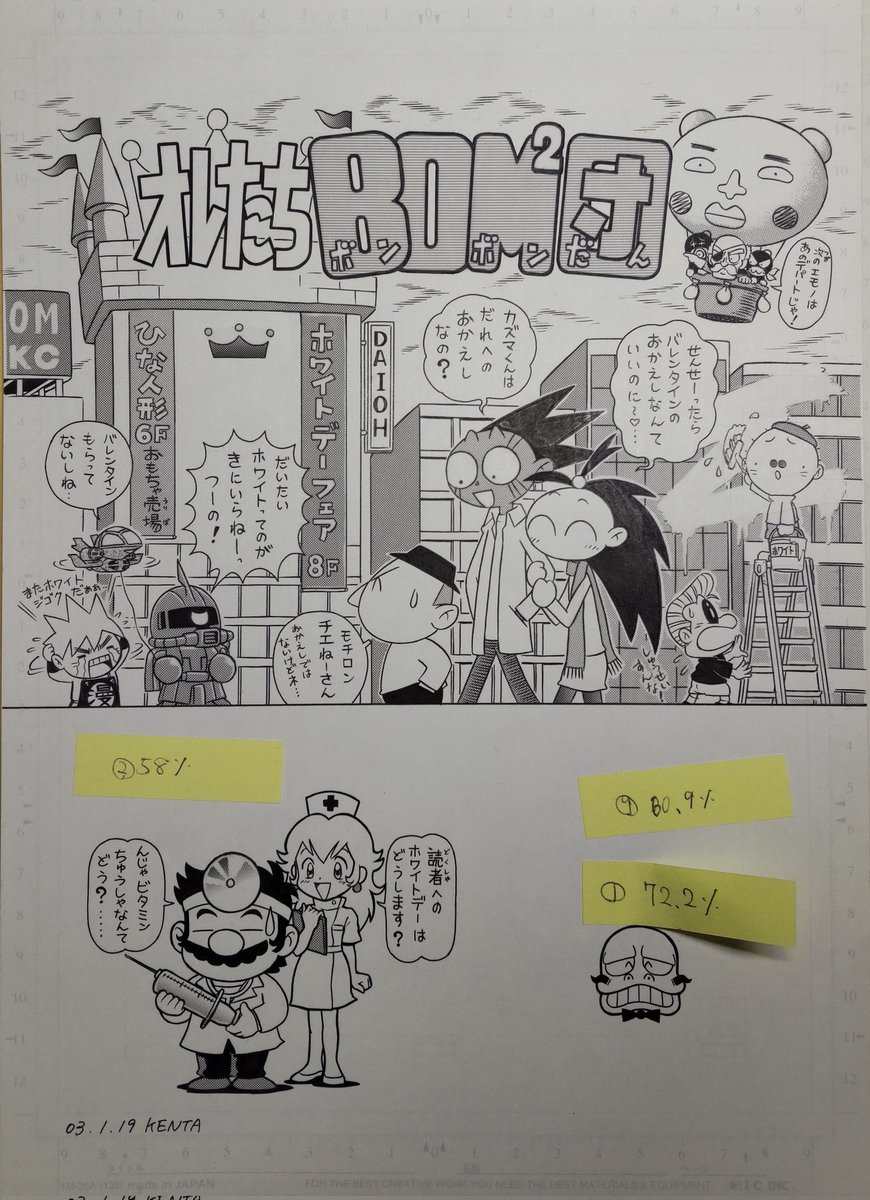 オレたちBOM²団
ボンボンだん
次のエモノは
あのデパートじゃ!
OM
KC
ひな人形
6F
おもちゃ売場
ホワイトデーフェア
8F
DAIOH
カズマくんは
だれへの
おかえし
なの?
せんせーったら
バレンタインの
おかえしなんて
いいのに〜♡…
バレンタイン
もらって
ないしね…
だいたい
ホワイトってのが
きにいらねーっ
つーの!
またホワイト
ジゴクだぁぁ…
漫
モチロン
チエねーさん
おかえしでは
ないけどネ…
ホワイト
しゅーせい
すんな!
②58%
④80,9%
①72,2%
読者への
どくしゃ
ホワイトデーは
どうします?
んじゃビタミン
ちゅうしゃなんて
どう?……
03.1.19 KENTA
タイトル
名前
made in JAPAN
FOR THE BEST CREATIVE WORK YOU NEED THE BEST MATERIALS & EQUIPMENT.
I・C INC.
03.1.19 KENTA